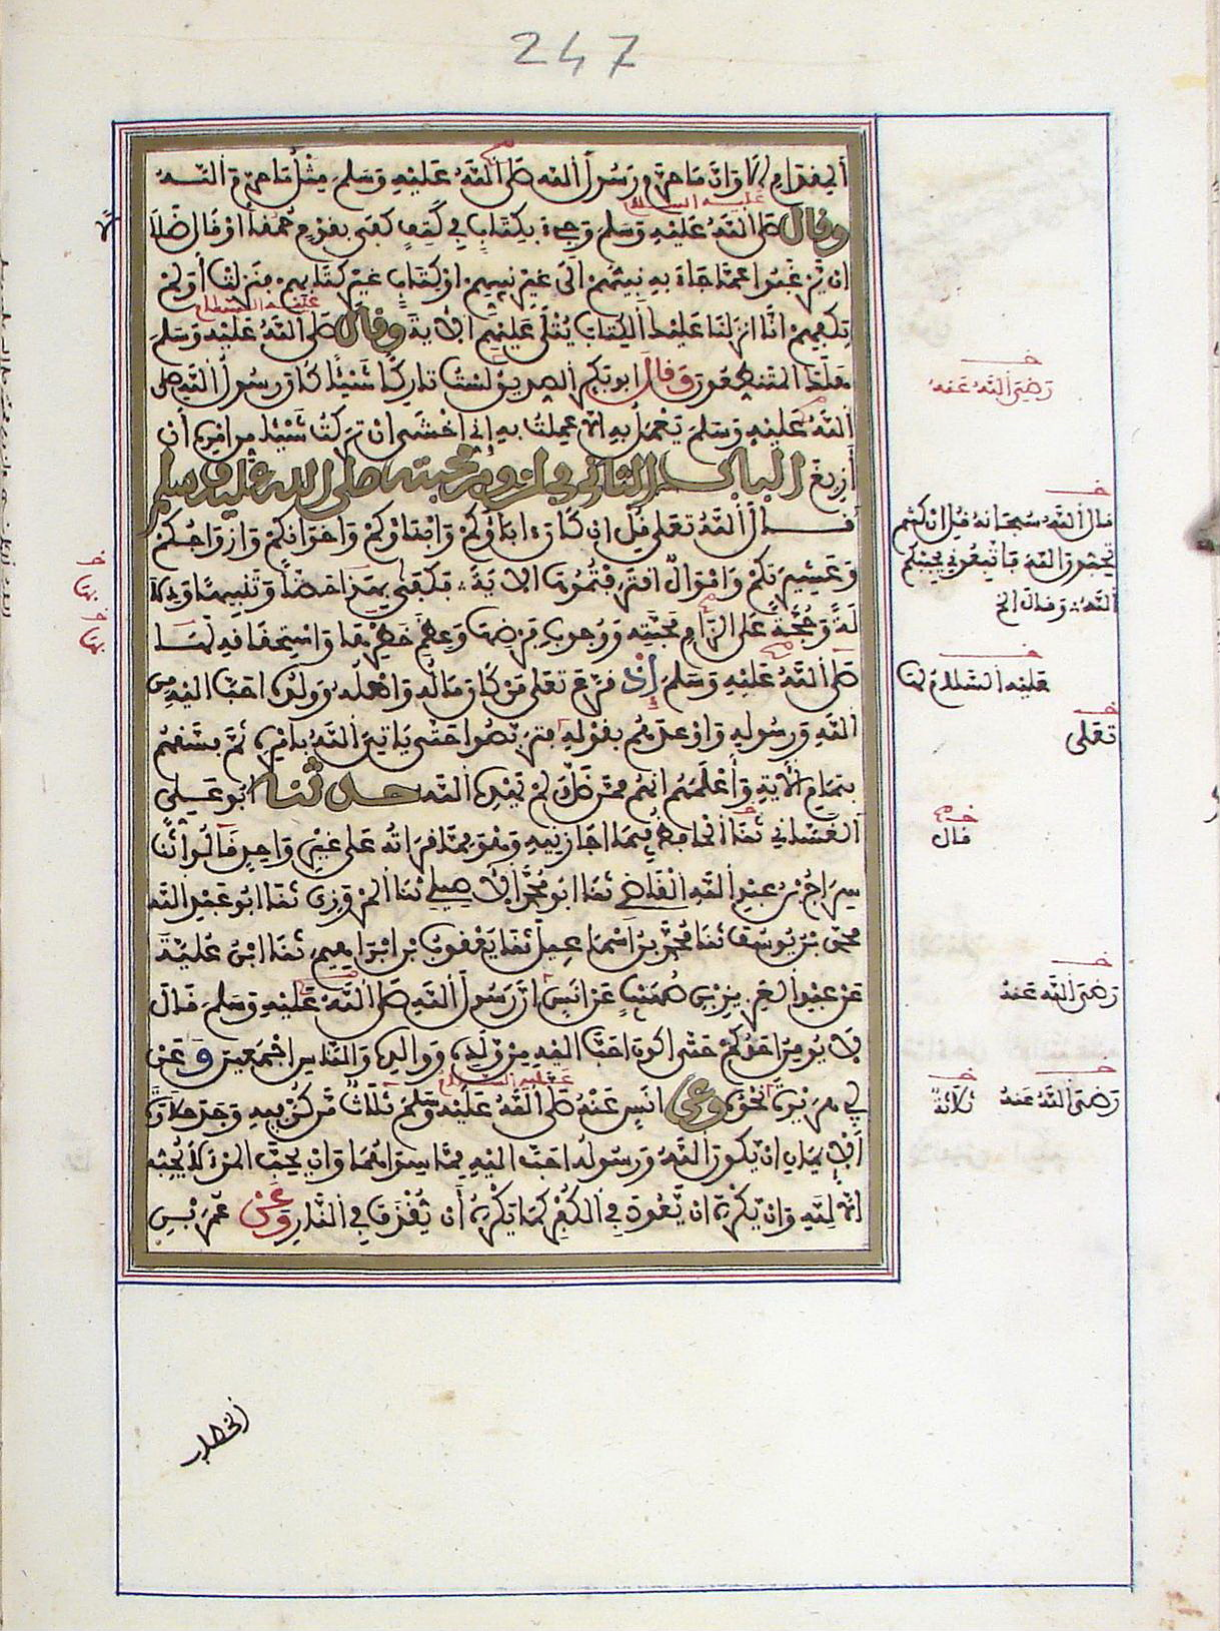 247
الحرام ألا وان ما حرم رسول الله صلى الله عليه وسلم مثل ما حرم الله
وقال صلى الله عليه وسلم وجيء بكتاب في كتف كفى بقوم حمقا أو قال ضلالا
عليه السلام
ان يرغبوا عما جاء به نبيهم الى غير نبيهم او كتاب غير كتابهم فنزلت أولم
يكفهم انا انزلنا عليك الكتاب يتلى عليهم الآية وقال صلى الله عليه وسلم
عليه السلام
هلك المتنطعون وقال ابو بكر الصديق لست تاركا شيئا كان رسول الله صلى
الله عليه وسلم يعمل به الا عملت به إني اخشى ان تركت شيئا من امره أن
أزيغ الباب الثاني في لزوم محبته صلى الله عليه وسلم
قال الله تعلى قل ان كان اباؤكم وابناؤكم واخوانكم وازواجكم
وعشيرتكم واموال اقترفتموها الاية فكفى بهذا حضا وتنبيها ودلا
لة وحجة على الزام محبته ووجوب فرضها وعظم خطرها واستحقاقه لها
صلى الله عليه وسلم إذ قرع تعلى من كان ماله واهله وولده احب اليه من
الله ورسوله واوعدهم بقوله فتربصوا حتى ياتي الله بامره ثم فسقهم
بتمام الآية وأعلمهم انهم ممن ضل ولم يهده الله حدثنا ابو علي
الغساني ثنا الحافظ فيما اجازنيه وهو مما قراته على غير واحد قالوا ثنا
سراج بن عبد الله القاضي ثنا ابو محمد الأصيلي ثنا المروزي ثنا ابو عبد الله
محمد بن يوسف ثنا محمد بن اسماعيل ثنا يعقوب بن ابراهيم ثنا ابن علية
عن عبد العزيز بن صهيب عن انس ان رسول الله صلى الله عليه وسلم قال
لا يومن احدكم حتى اكون احب اليه من ولده ووالده والناس اجمعين وعن
ابي هريرة نحوه وعن انس عنه صلى الله عليه وسلم ثلاث من كن فيه وجد حلاوة
عليه السلام
الإيمان ان يكون الله ورسوله احب اليه مما سواهما وان يحب المرء لا يحبه
الا لله وان يكره ان يعود في الكفر كما يكره أن يقذف في النار وعن عمر بن
رضي الله عنه
قال الله سبحانه قل ان كنتم
تحبون الله فاتبعوني يحببكم
الله وقال الخ
عليه السلام لها
تعلى
قال
رضي الله عنه
رضي الله عنه
ثلاثة
بها
بها
الخطاب